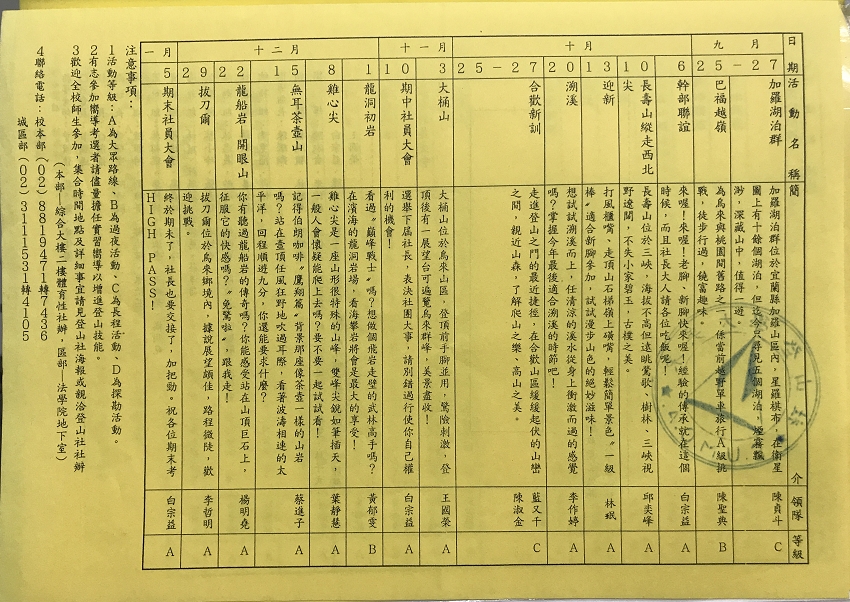 日期 活動名稱 簡介 領隊 等級
九月
27 加羅湖泊群
加羅湖泊群位於宜蘭縣加羅山區內，星羅棋布，在衛星
圖上有十餘個湖泊，但迄今只尋見五個湖泊，煙霧飄
渺，深藏山中，值得一遊。
陳貞斗 C
25 巴福越嶺
為烏來與桃園間舊路之一，係當前越野單車旅行A級挑
戰，徒步行過，饒富趣味。
陳聖典 B
十月
6 幹部聯誼
來喔！來喔！老腳、新腳快來喔！經驗的傳承就在這個
時候，而且社長大人請各位吃飯呢！
白宗益 A
10 長壽山縱走西北
尖
長壽山位於三峽，海拔不高但遠眺鶯歌、樹林、三峽視
野遼闊，不失小家碧玉，古樸之美。
邱奕峰 A
13 迎新
打風櫃嘴、走頂山石梯嶺上磺嘴，輕鬆簡單景色〝一級
棒〞適合新腳參加，試試漫步山色的絕妙滋味！
林珉 A
20 溯溪
想試試溯溪而上，任清涼的溪水從身上衝激而過的感覺
嗎？掌握今年最後適合溯溪的時節吧！
李作婷 A
25－27 合歡新訓
走進登山之門的最近捷徑，在合歡山區緩緩起伏的山巒
之間，親近山森，了解爬山之樂、高山之美。
藍又千
陳淑金
C
十一月
3 大桶山
大桶山位於烏來山區，登頂前手腳並用，驚險刺激，登
頂後有一展望台可遍覽烏來群峰，美景盡收！
王國榮 A
10 期中社員大會
選舉下屆社長，表決社團大事，請別錯過行使你自己權
利的機會！
白宗益 A
十二月
1 龍洞初岩
看過〝巔峰戰士〞嗎？想做個飛岩走壁的武林高手嗎？
在濱海的龍洞岩場，看海攀岩將會是最大的享受！
黃郁雯 B
8 雞心尖
雞心尖是一座山形很特殊的山峰，雙峰尖銳如筆插天，
一般人會懷疑能爬上去嗎？要不要一起試試看！
葉靜慧 A
15 無耳茶壺山
記得伯朗咖啡〝鷹翔篇〞背景那座像茶壺一樣的山岩
嗎？站在壺頂任風狂野地吹過耳際，看著波濤相連的太
平洋，回程順遊九分，你還能要求什麼？
蔡進子 A
22 龍船岩—開眼山
你有聽過龍船岩的傳奇嗎？你能感受站在山頂巨石上，
征服它的快感嗎？〝免驚啦〞，跟我走！
楊明堯 A
29 拔刀爾
拔刀爾山位於烏來鄉境內，據說展望頗佳，路程微陡，歡
迎挑戰。
李哲明 A
一月
5 期末社員大會
終於期末了，社長也要交接了，加把勁。祝各位期末考
HIGH PASS！
白宗益 A
注意事項：
1活動等級：A為大眾路線、B為過夜活動、C為長程活動、D為探勘活動。
2有志參加嚮導考選者請儘量擔任實習嚮導以增進登山技能。
3歡迎全校師生參加，集合時間地點及詳細事宜請見登山社海報或親洽登山社社辦
（本部—綜合大樓二樓體育性社辦，區部—法學院地下室）
4聯絡電話：校本部（02）8819471轉7436
城區部（02）3111531轉4105